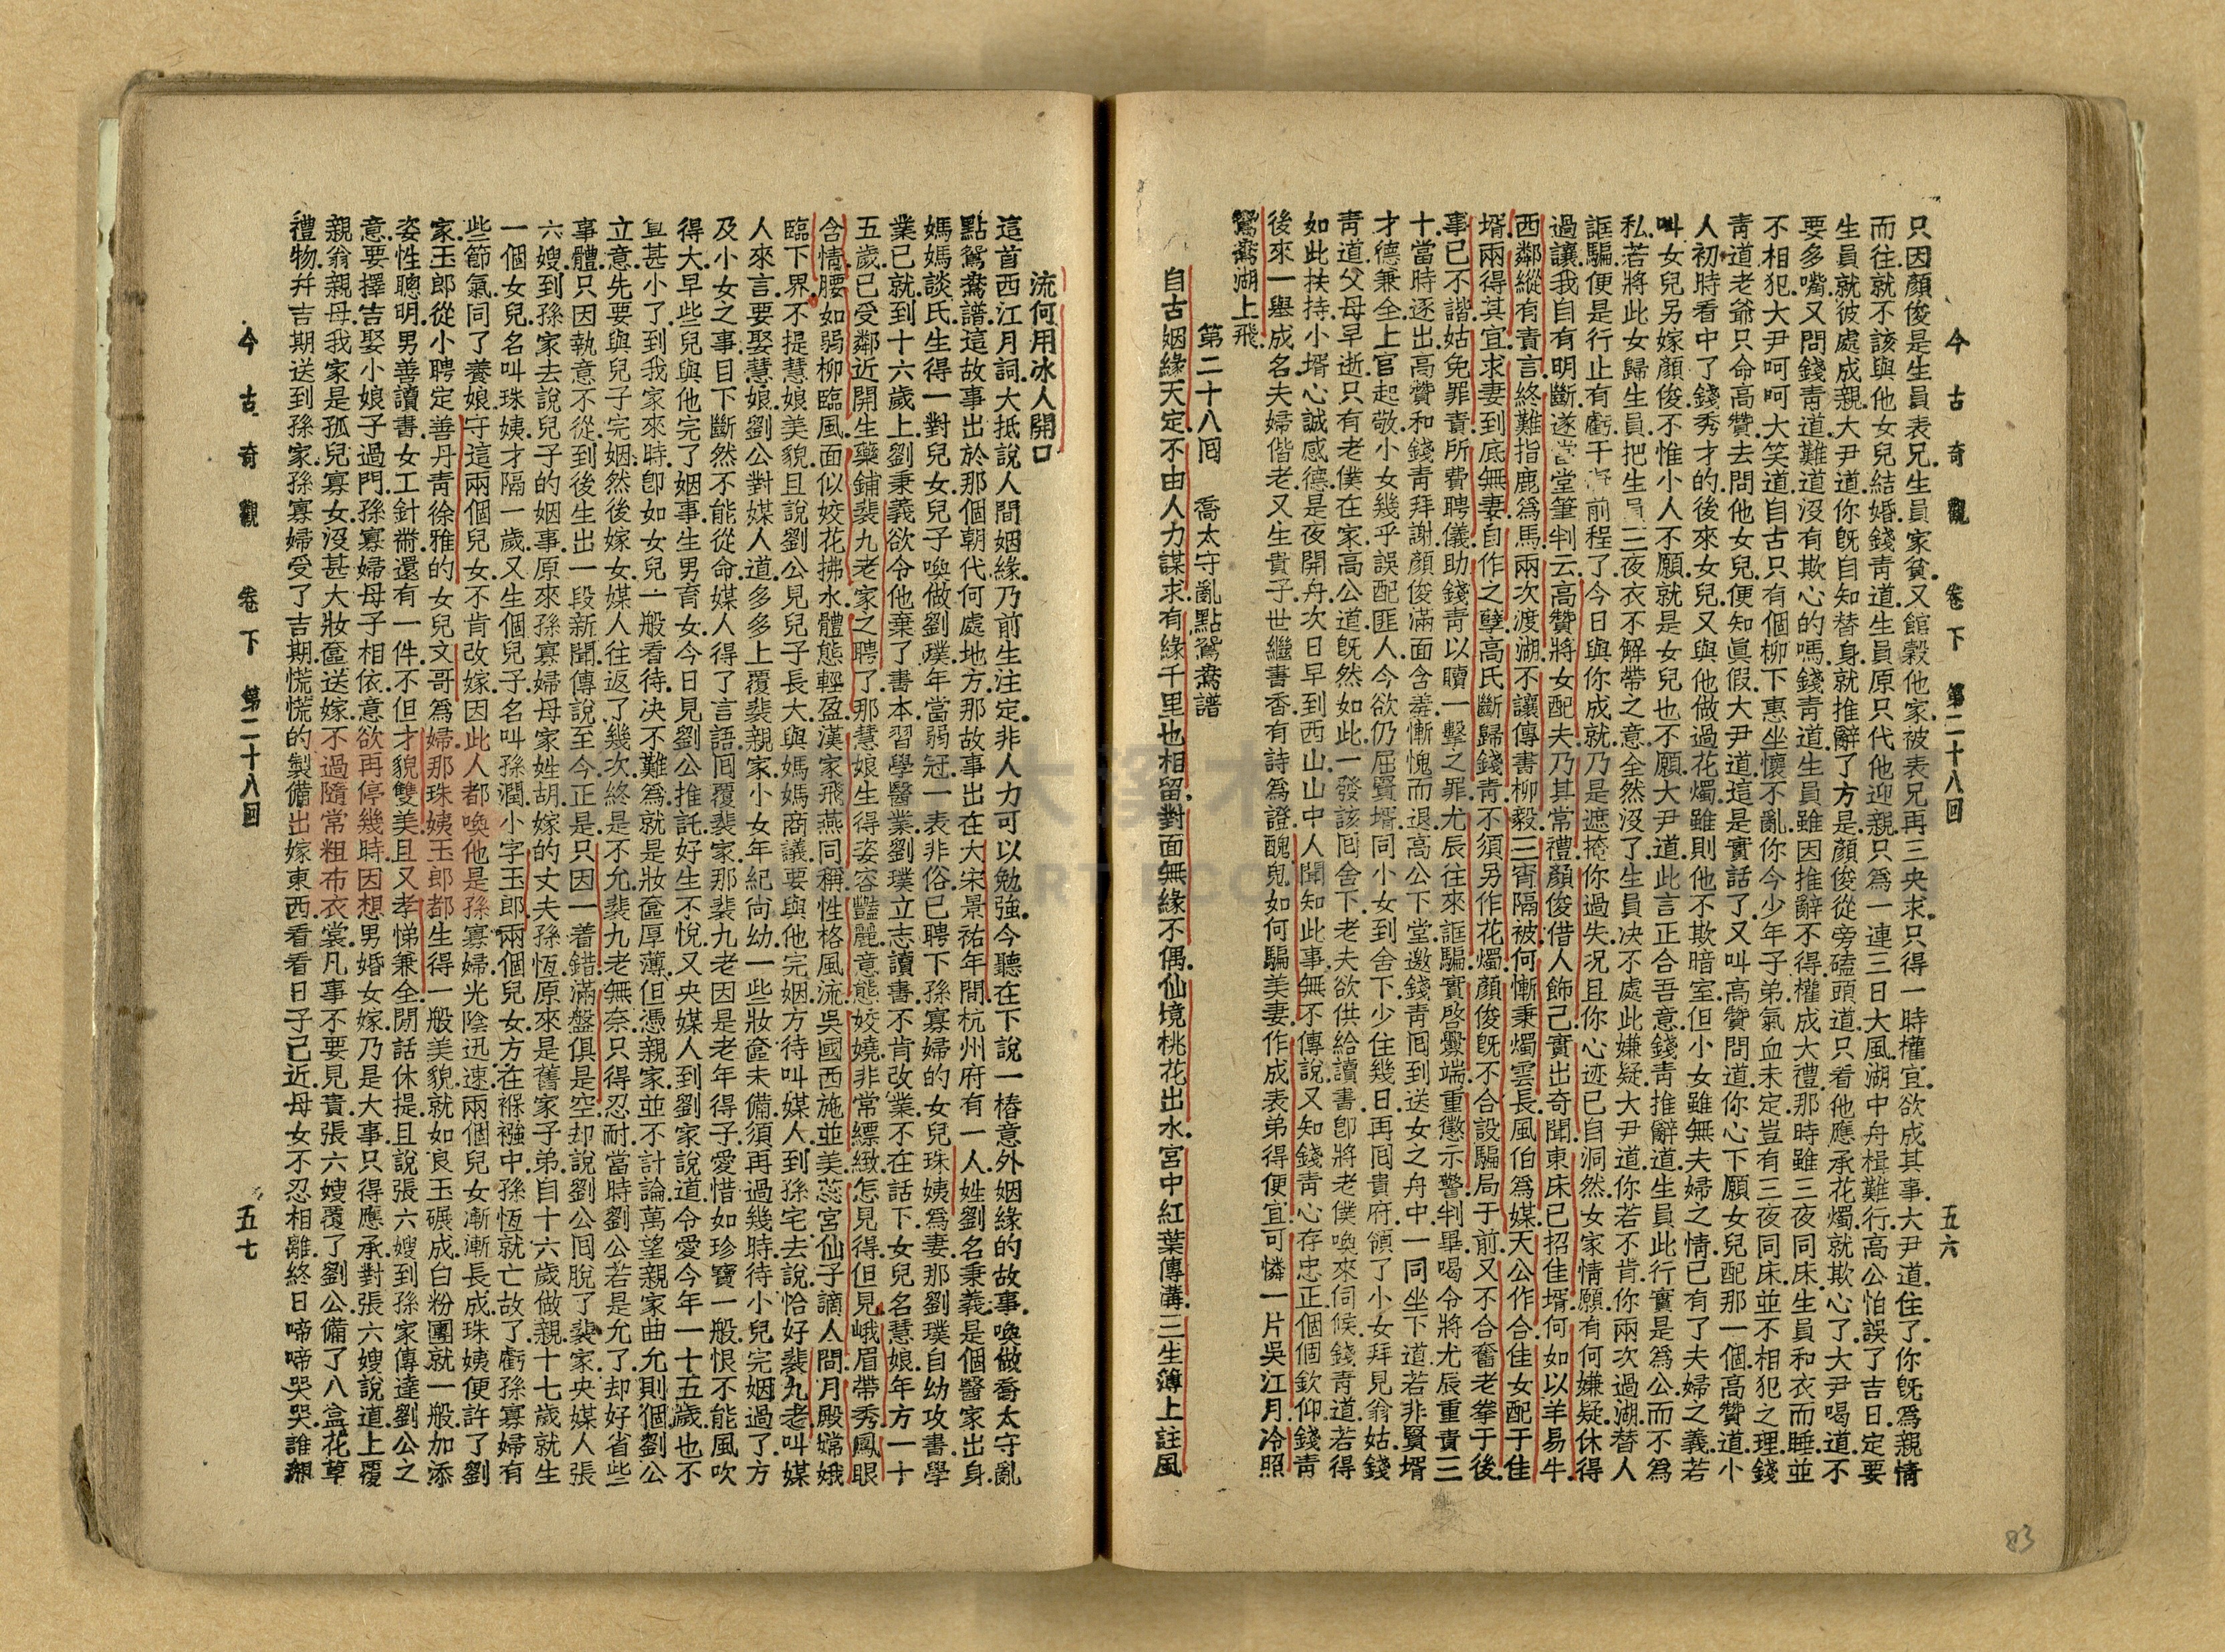 今古奇觀 卷下 第二十八回 五六
只因顏俊是生員表兄生員家貧又館穀他家被表兄再三央求只得一時權宜欲成其事大尹道住了你既爲親情
而往就不該與他女兒結婚錢青道生員原只代他迎親只爲一連三日大風湖中舟楫難行高公怕誤了吉日定要
生員就彼處成親大尹道你既自知替身就推辭了方是顏俊從旁磕頭道只看他應承花燭就欺心了大尹喝道不
要多嘴又問錢青道難道沒有欺心的嗎錢青道生員雖因推辭不得權成大禮那時雖三夜同床生員和衣而睡並
不相犯大尹呵呵大笑道自古只有個柳下惠坐懷不亂你今少年子弟氣血未定豈有三夜同床並不相犯之理錢
青道老爺只命高贊去問他女兒便知眞假大尹道這是實話了又叫高贊問道你心下願女兒配那一個高贊道小
人初時看中了錢秀才的後來女兒又與他做過花燭雖則他不欺暗室但小女雖無夫婦之情已有了夫婦之義若
叫女兒另嫁顏俊不惟小人不願就是女兒也不願大尹道此言正合吾意錢青推辭道生員此行實是爲公而不爲
私若將此女歸生員把生員三夜衣不解帶之意全然沒了生員決不處此嫌疑大尹道你若不肯你兩次過湖替人
誆騙便是行止有虧干 前程了今日與你成就乃是遮掩你過失況且你心迹已自洞然女家情願有何嫌疑休得
過讓我自有明斷遂當堂筆判云高贊將女配夫乃其常禮顏俊借人飾己實出奇聞東床已招佳壻何如以羊易牛
西鄰縱有責言終難指鹿爲馬兩次渡湖不讓傳書柳毅三宵隔被何慚秉燭雲長風伯爲媒天公作合佳女配于佳
壻兩得其宜求妻到底無妻自作之孽高氏斷歸錢青不須另作花燭顏俊既不合設騙局于前又不合奮老拳于後
事已不諧姑免罪責所費聘儀助錢青以贖一擊之罪尤辰往來誆騙實啓釁端重懲示警判畢喝令將尤辰重責三
十當時逐出高贊和錢青拜謝顏俊滿面含羞慚愧而退高公下堂邀錢青囘到送女之舟中一同坐下道若非賢壻
才德兼全上官起敬小女幾乎誤配匪人今欲仍屈賢壻同小女到舍下少住幾日再囘貴府領了小女拜見翁姑錢
青道父母早逝只有老僕在家高公道既然如此一發該囘舍下老夫欲供給讀書卽將老僕喚來伺候錢青道若得
如此扶持小壻心誠感德是夜開舟次日早到西山山中人聞知此事無不傳說又知錢青心存忠正個個欽仰錢青
後來一舉成名夫婦偕老又生貴子世繼書香有詩爲證醜兒如何騙美妻作成表弟得便宜可憐一片吳江月冷照
鴛鴦湖上飛
第二十八囘 喬太守亂點鴛鴦譜
自古姻緣天定不由人力謀求有緣千里也相留對面無緣不偶仙境桃花出水宮中紅葉傳溝三生簿上註風
流何用冰人開口
這首西江月詞大抵說人間姻緣乃前生注定非人力可以勉強今聽在下說一樁意外姻緣的故事喚做喬太守亂
點鴛鴦譜這故事出於那個朝代何處地方那故事出在大宋景祐年間杭州府有一人姓劉名秉義是個醫家出身
媽媽談氏生得一對兒女兒子喚做劉璞年當弱冠一表非俗已聘下孫寡婦的女兒珠姨爲妻那劉璞自幼攻書學
業已就到十六歲上劉秉義欲令他棄了書本習學醫業劉璞立志讀書不肯改業不在話下女兒名慧娘年方一十
五歲已受鄰近開生藥鋪裴九老家之聘了那慧娘生得姿容豔麗意態姣嬈非常縹緻怎見得但見峨眉帶秀鳳眼
含情腰如弱柳臨風面似姣花拂水體態輕盈漢家飛燕同稱性格風流吳國西施並美蕊宮仙子謫人間月殿嫦娥
臨下界不提慧娘美貌且說劉公見兒子長大與媽媽商議要與他完姻方待叫媒人到孫宅去說恰好裴九老叫媒
人來言要娶慧娘劉公對媒人道多多上覆裴親家小女年紀尚幼一些妝奩未備須再過幾時待小兒完姻過了方
及小女之事目下斷然不能從命媒人得了言語囘覆裴家那裴九老因是老年得子愛惜如珍寶一般恨不能風吹
得大早些兒與他完了姻事生男育女今日見劉公推託好生不悅又央媒人到劉家說道令愛今年一十五歲也不
算甚小了到我家來時卽如女兒一般看待决不難爲就是妝奩厚薄但憑親家並不計論萬望親家曲允則個劉公
立意先要與兒子完姻然後嫁女媒人往返了幾次終是不允裴九老無奈只得忍耐當時劉公若是允了却好省些
事體只因執意不從到後生出一段新聞傳說至今正是只因一着錯滿盤俱是空却說劉公囘脫了裴家央媒人張
六嫂到孫家去說兒子的姻事原來孫寡婦母家姓胡嫁的丈夫孫恆原來是舊家子弟自十六歲做親十七歲就生
一個女兒名叫珠姨才隔一歲又生個兒子名叫孫潤小字玉郎兩個兒女方在褓襁中孫恆就亡故了虧孫寡婦有
些節氣同了養娘守這兩個兒女不肯改嫁因此人都喚他是孫寡婦光陰迅速兩個兒女漸漸長成珠姨便許了劉
家玉郎從小聘定善丹青徐雅的女兒文哥爲婦那珠姨玉郎都生得一般美貌就如良玉碾成白粉團就一般加添
姿性聰明男善讀書女工針黹還有一件不但才貌雙美且又孝悌兼全閒話休提且說張六嫂到孫家傳達劉公之
意要擇吉娶小娘子過門孫寡婦母子相依意欲再停幾時因想男婚女嫁乃是大事只得應承對張六嫂說道上覆
親翁親母我家是孤兒寡女沒甚大妝奩送嫁不過隨常粗布衣裳凡事不要見責張六嫂覆了劉公備了八盒花草
禮物并吉期送到孫家孫寡婦受了吉期慌慌的製備出嫁東西看看日子已近母女不忍相離終日啼啼哭哭誰想
今古奇觀 卷下 第二十八回 五七
83